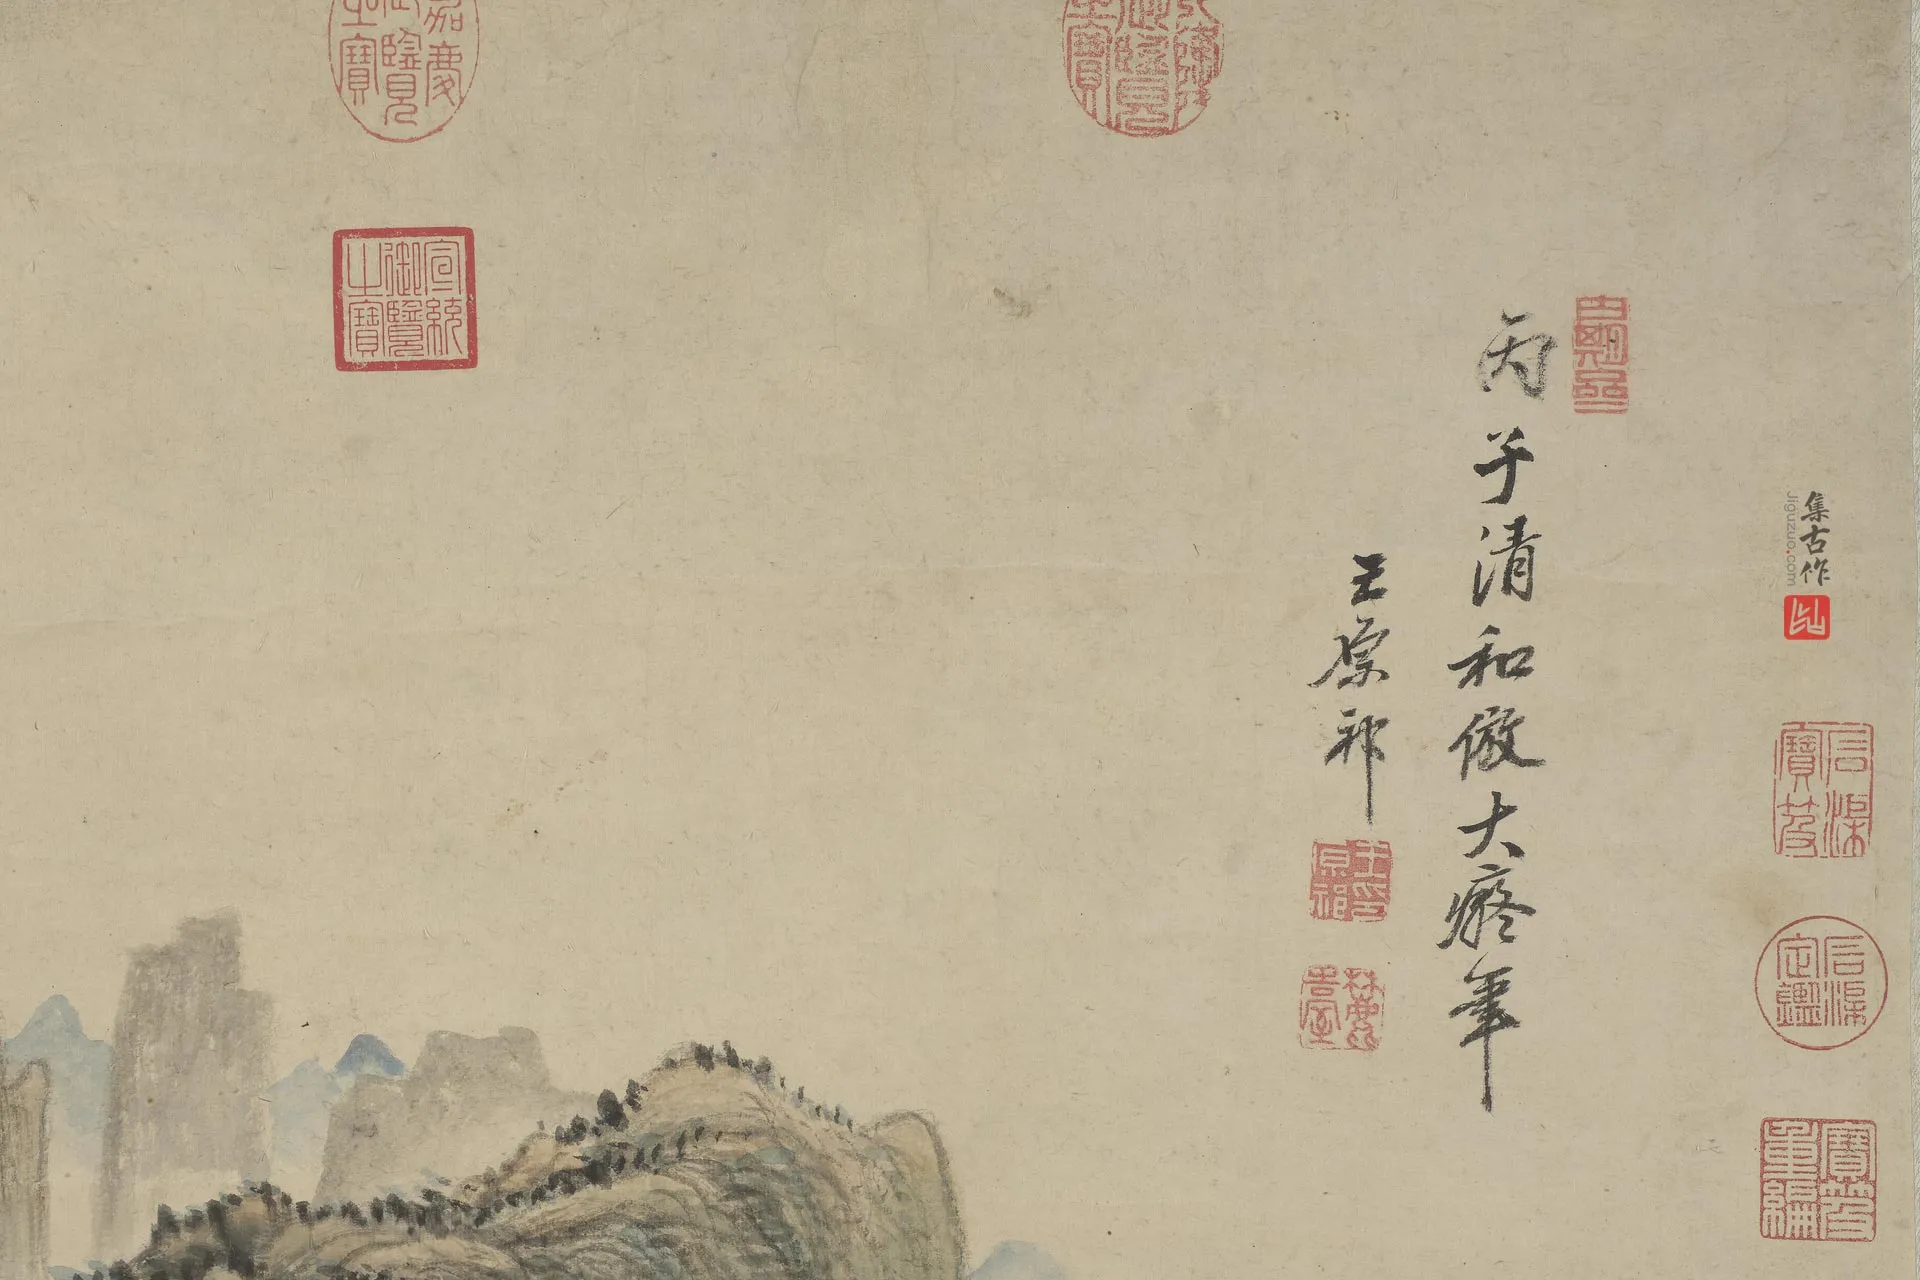 丙子清和倣大癡筆
王原祁
王原祁印
麓臺
石渠寶笈
石渠定鑑
寶笈重編
嘉慶御覽之寶
宣統御覽之寶
集古作
Jiguzuo.com